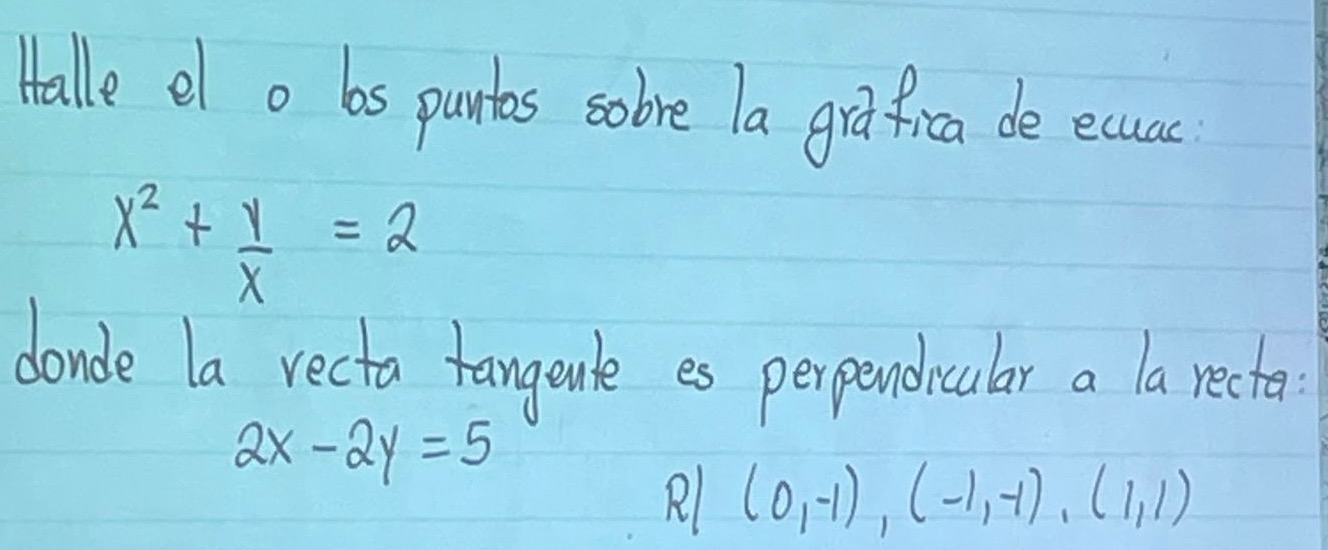 Halle el o los puntos sobre la gráfica de ecuac:
x² + y/x = 2
donde la recta tangente es perpendicular a la recta:
2x - 2y = 5
R| (0,-1), (-1,-1), (1,1)